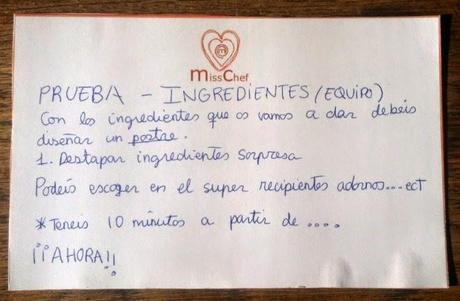 MissChef
PRUEBA - INGREDIENTES (EQUIPO)
Con los ingredientes que os vamos a dar debeis
diseñar un postre.
1. Destapar ingredientes sorpresa
Podeis escoger en el super recipientes adornos...ect
*Teneis 10 minutos a partir de ....
¡¡AHORA!!